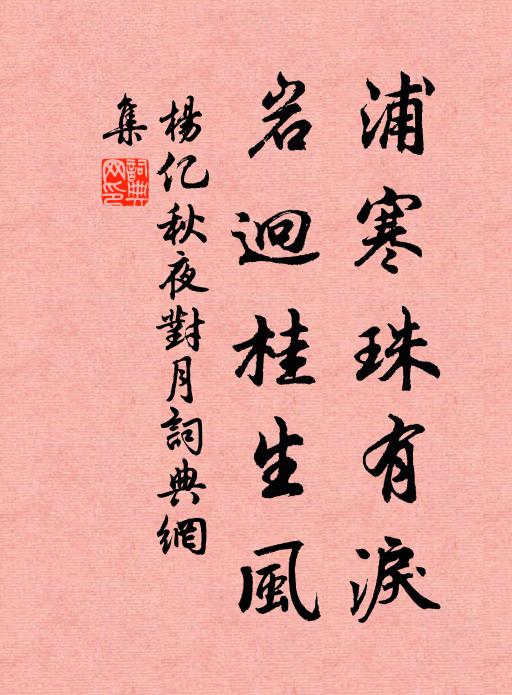 浦寒珠有淚
岩迥桂生風
楊億秋夜對月詞典網
集
詞典網印